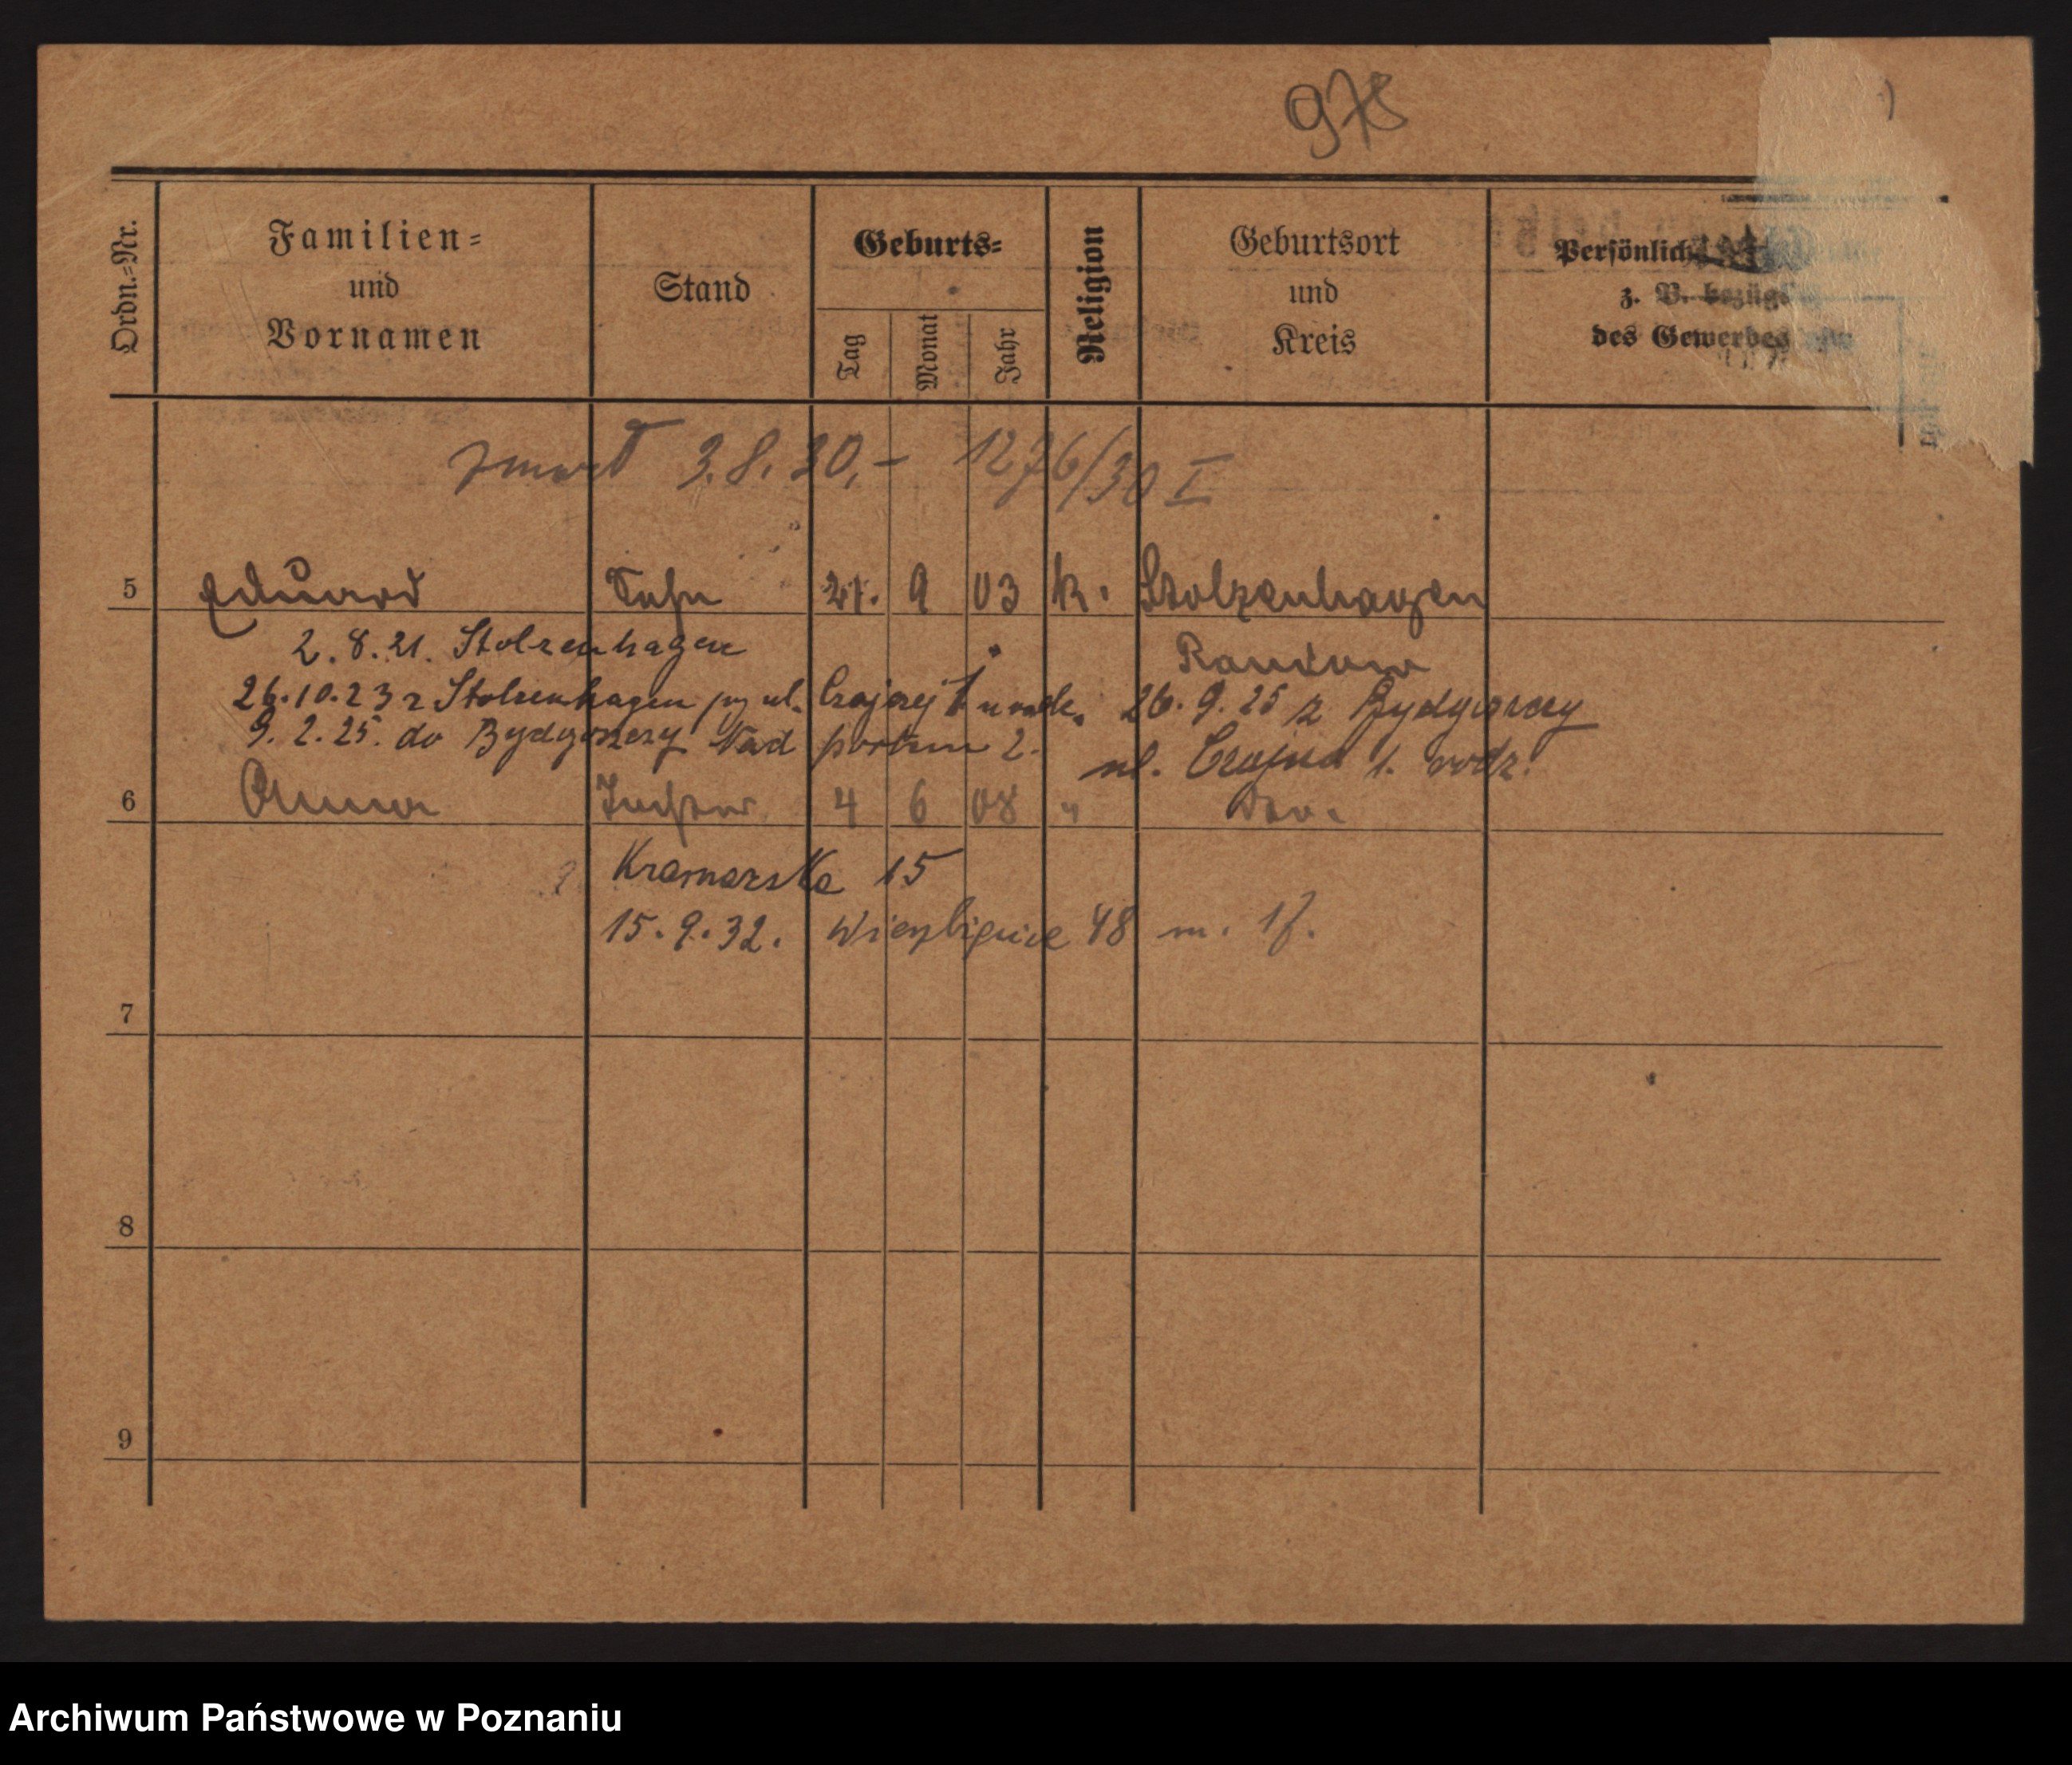 978
Ordn.-Nr.
Familien-
und
Vornamen
Stand
Geburts-
Tag
Monat
Jahr
Religion
Geburtsort
und
Kreis
Persönlich
z. B. bezügl
des Gewerbes
zmarł 3.8.30,- 1276/30 I
5 Eduard Sohn 27. 9 03 k. Stolzenhagen
2.8.21. Stolzenhagen
Randow
26.10.23 z Stolzenhagen ul. Czajczej 1
9.2.25. do Bydgoszczy Nad portem 2.
26.9.25 z Bydgoszczy
ul. Czajcza 1. rodz.
6 Anna Tochter 4 6 08 " Dto.
Kramarska 15
15.9.32. Wierzbięcice 48 m. 17.
7
8
9
Archiwum Państwowe w Poznaniu